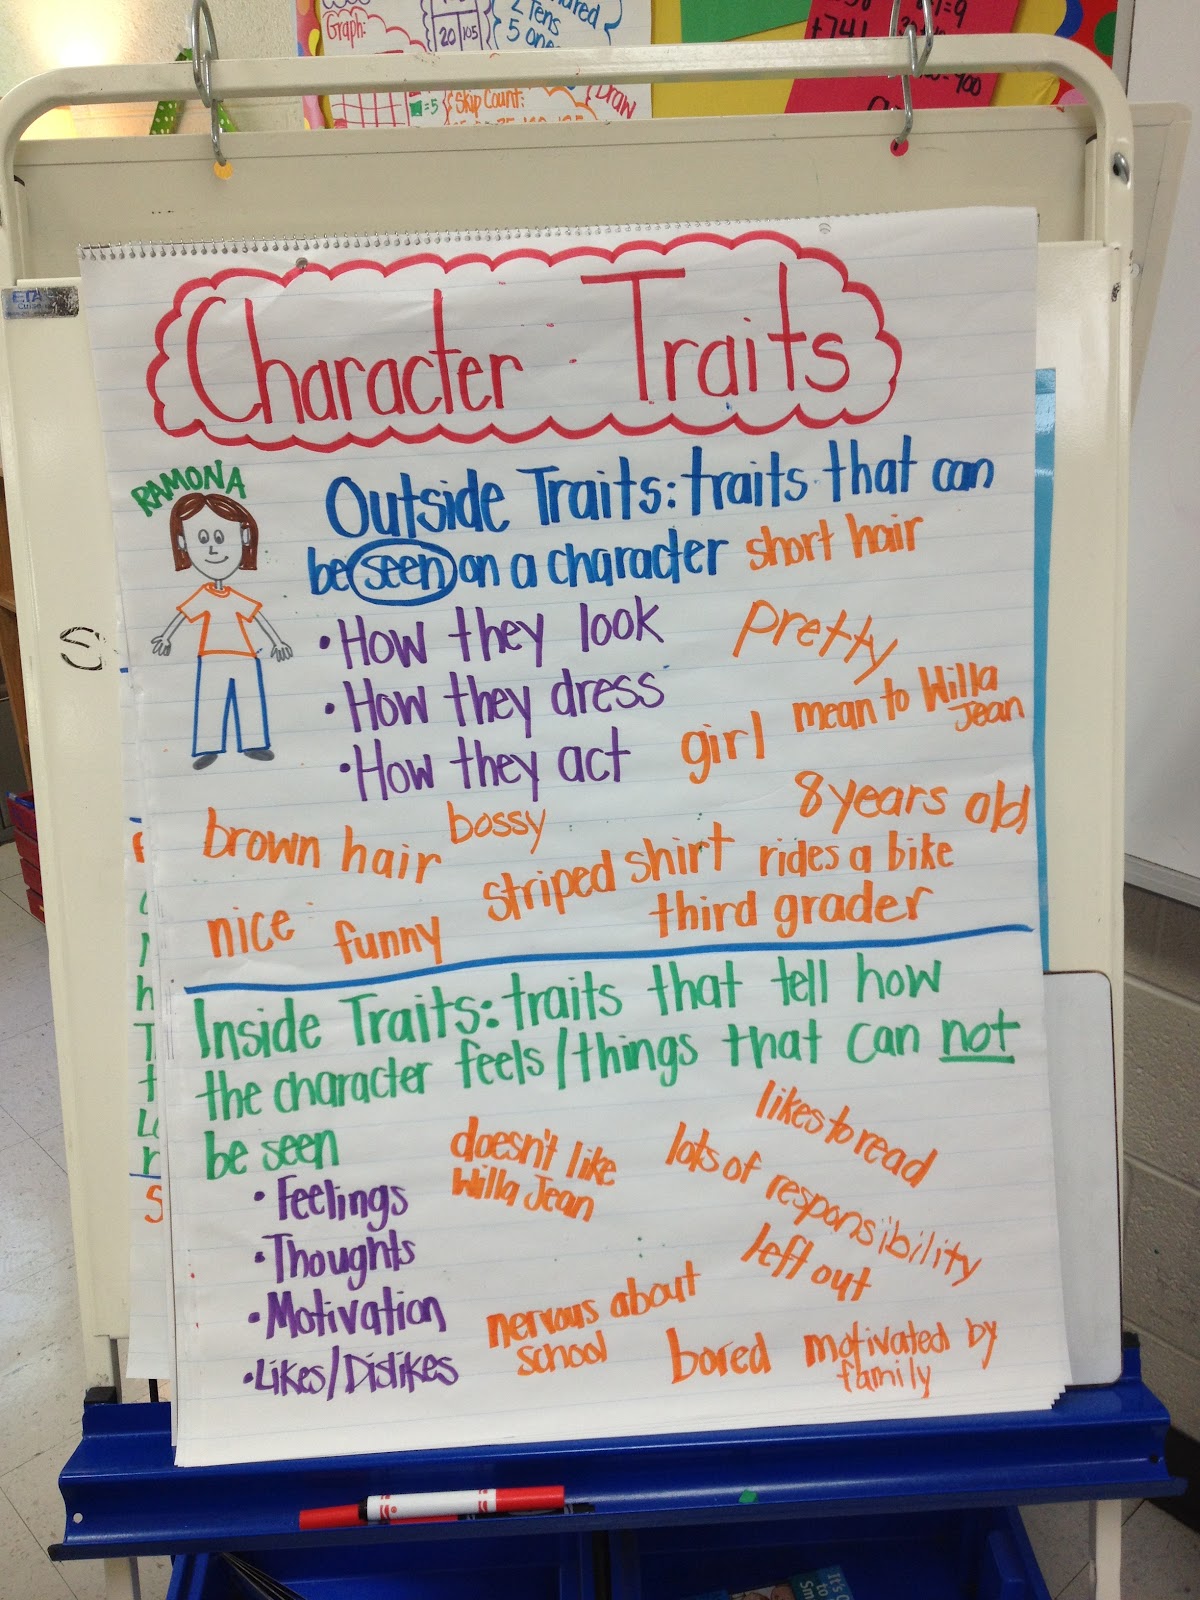 Graph:
2 Tens
5 one
20 105
=5
Skip Count:
Draw
+741
=9
ETA
Character Traits
RAMONA
Outside Traits: traits that can
be seen on a character short hair
• How they look
pretty
• How they dress
mean to Willa
Jean
• How they act
girl
8 years old
brown hair
bossy
striped shirt
rides a bike
nice
funny
third grader
Inside Traits: traits that tell how
the character feels/things that can not
be seen
likes to read
doesn't like
Willa Jean
lots of responsibility
• Feelings
• Thoughts
left out
• Motivation
nervous about
school
bored
motivated by
family
• Likes/Dislikes